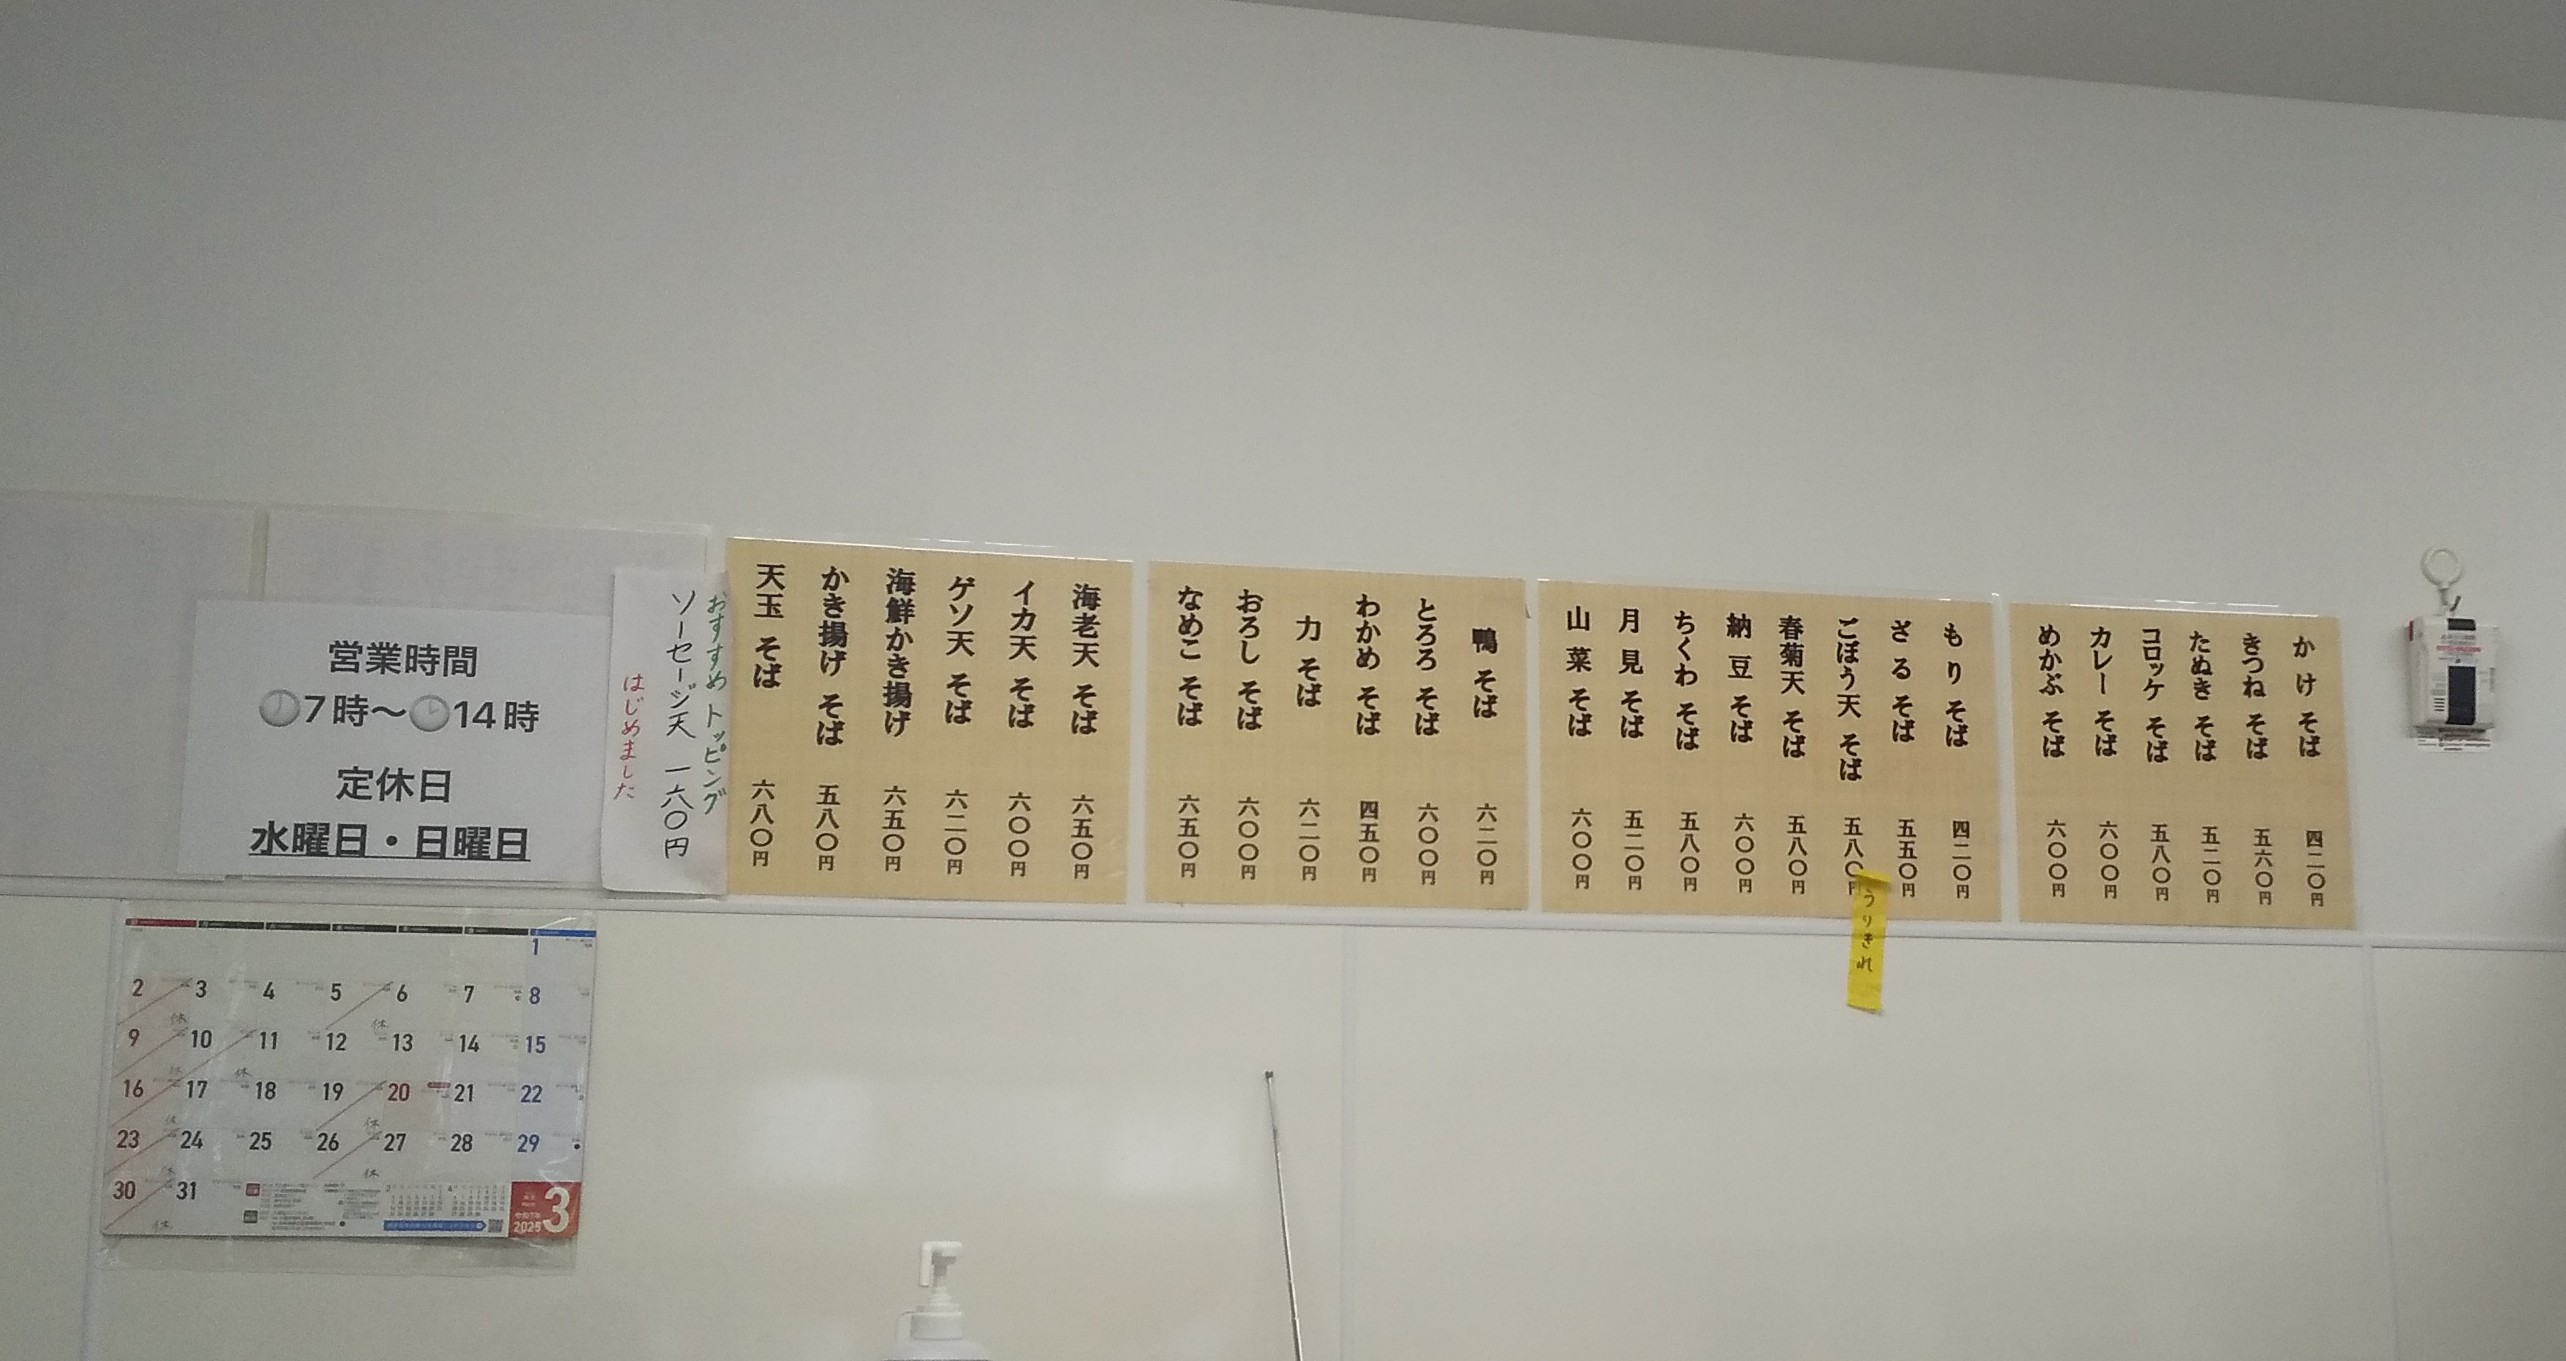 かけ そば 四二〇円
きつね そば 五六〇円
たぬき そば 五二〇円
コロッケ そば 五八〇円
カレー そば 六〇〇円
めかぶ そば 六〇〇円
もり そば 四二〇円
ざる そば 五五〇円
ごぼう天 そば 五八〇円
うりきれ
春菊天 そば 五八〇円
納豆 そば 六〇〇円
ちくわ そば 五八〇円
月見 そば 五二〇円
山菜 そば 六〇〇円
鴨 そば 六二〇円
とろろ そば 六〇〇円
わかめ そば 四五〇円
力 そば 六二〇円
おろし そば 六〇〇円
なめこ そば 六五〇円
海老天 そば 六五〇円
イカ天 そば 六〇〇円
ゲソ天 そば 六二〇円
海鮮かき揚げ 六五〇円
かき揚げ そば 五八〇円
天玉 そば 六八〇円
おすすめ トッピング
ソーセージ天 一六〇円
はじめました
営業時間
🕗7時～🕑14時
定休日
水曜日・日曜日
1
2 3 4 5 6 7 8
休 休
9 10 11 12 13 14 15
休 休
16 17 18 19 20 21 22
休 休
23 24 25 26 27 28 29
休 休
30 31
休
2025 3